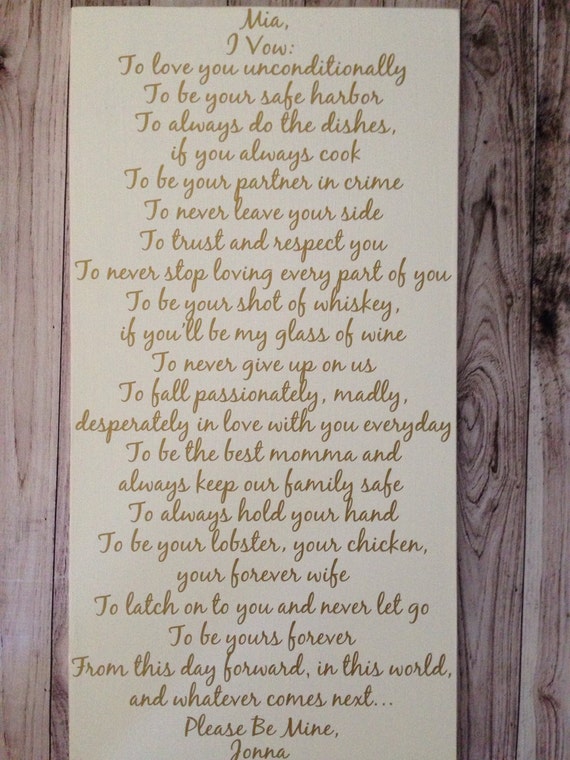 Mia,
I Vow:
To love you unconditionally
To be your safe harbor
To always do the dishes,
if you always cook
To be your partner in crime
To never leave your side
To trust and respect you
To never stop loving every part of you
To be your shot of whiskey,
if you'll be my glass of wine
To never give up on us
To fall passionately, madly,
desperately in love with you everyday
To be the best momma and
always keep our family safe
To always hold your hand
To be your lobster, your chicken,
your forever wife
To latch on to you and never let go
To be yours forever
From this day forward, in this world,
and whatever comes next...
Please Be Mine,
Jonna